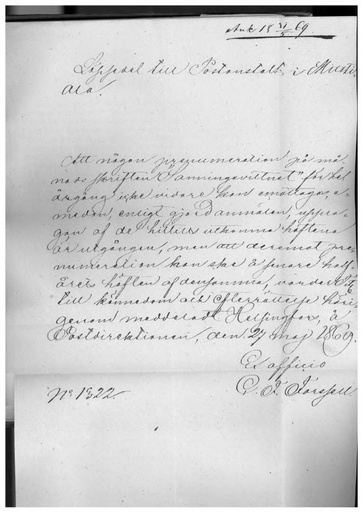 Ank 18 31/5 69
Löpsedel till Postanstalt. i Musti-
ala.
Att någon prenumeration på må-
nads skriften "Sanningsvittnet" för hel
årgång icke vidare kan emottagas, e-
medan, enligt gjord anmälan, uppla-
gan af de hittills utkomna häftena
är utgången, men att deremot pre-
numeration kan ske å senare half-
årets häften af densamma, varder
till kännedom och efterrättelse häri-
genom meddeladt Helsingfors, å
Postdirektionen, den 27 maj 1869.
Ex officio
Nº 1322.